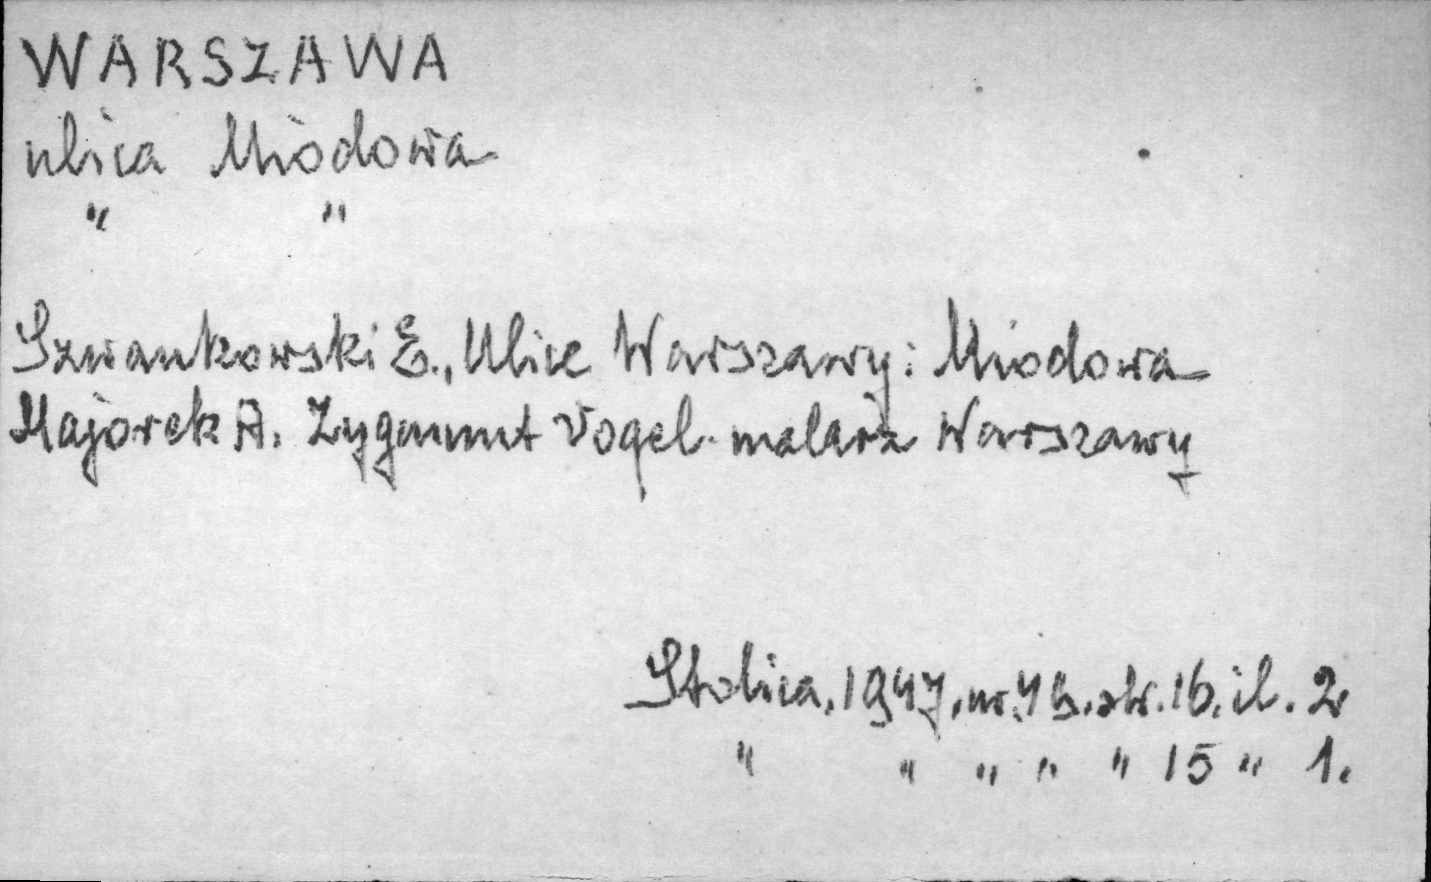 WARSZAWA
ulica Miodowa
" "
Szwankowski E., Ulice Warszawy: Miodowa
Majorek A. Zygmunt Vogel - malarz Warszawy
Stolica, 1947, nr. 43, str. 16, il. 2
" " " " " 15 " 1.